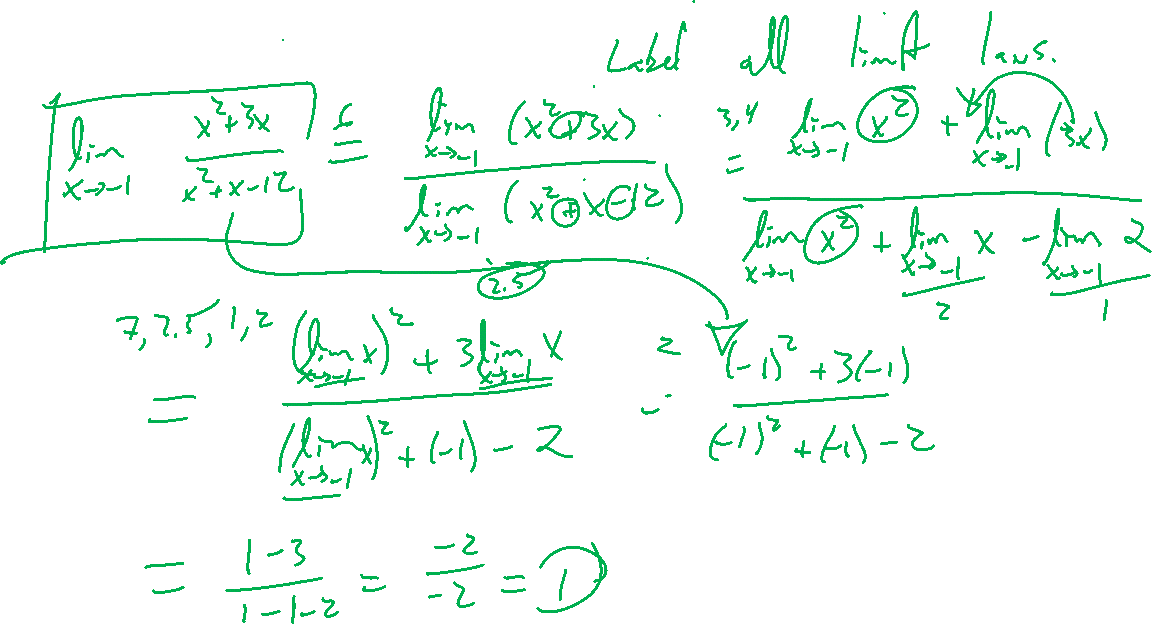 Label all limit laws.
lim x→-1 (x²+3x)/(x²+x-12) =⁶ lim x→-1 (x²+3x) / lim x→-1 (x²+x-12) =³,⁴ (lim x→-1 x² + lim x→-1 (3x)) / (lim x→-1 x² + lim x→-1 x - lim x→-1 2)
2.5
2 1
7, 2.5, 1, 2
= ((lim x→-1 x)² + 3 lim x→-1 x) / ((lim x→-1 x)² + (-1) - 2) =² ((-1)² + 3(-1)) / ((-1)² + (-1) - 2)
= (1-3)/(1-1-2) = -2/-2 = 1